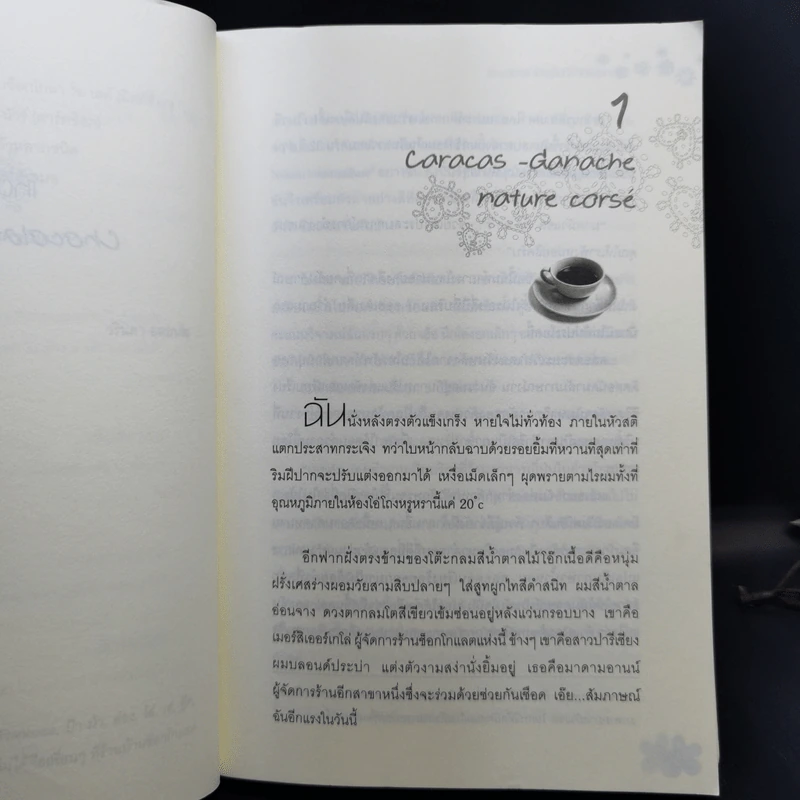 1
Caracas -Ganache
nature corsé
ฉันนั่งหลังตรงตัวแข็งเกร็ง หายใจไม่ทั่วท้อง ภายในหัวสติ
แตกประสาทกระเจิง ทว่าใบหน้ากลับฉาบด้วยรอยยิ้มที่หวานที่สุดเท่าที่
ริมฝีปากจะปรับแต่งออกมาได้ เหงื่อเม็ดเล็กๆ ผุดพรายตามไรผมทั้งที่
อุณหภูมิภายในห้องโอ่โถงหรูหรานี้แค่ 20°c
อีกฟากฝั่งตรงข้ามของโต๊ะกลมสีน้ำตาลไม้โอ๊กเนื้อดีคือหนุ่ม
ฝรั่งเศสร่างผอมวัยสามสิบปลายๆ ใส่สูทผูกไทสีดำสนิท ผมสีน้ำตาล
อ่อนจาง ดวงตากลมโตสีเขียวเข้มซ่อนอยู่หลังแว่นกรอบบาง เขาคือ
เมอร์สิเออร์เกโล่ ผู้จัดการร้านช็อกโกแลตแห่งนี้ ข้างๆ เขาคือสาวปารีเซียง
ผมบลอนด์ประบ่า แต่งตัวงามสง่านั่งยิ้มอยู่ เธอคือมาดามอานน์
ผู้จัดการร้านอีกสาขาหนึ่งซึ่งจะร่วมด้วยช่วยกันเชือด เอ๊ย...สัมภาษณ์
ฉันอีกแรงในวันนี้